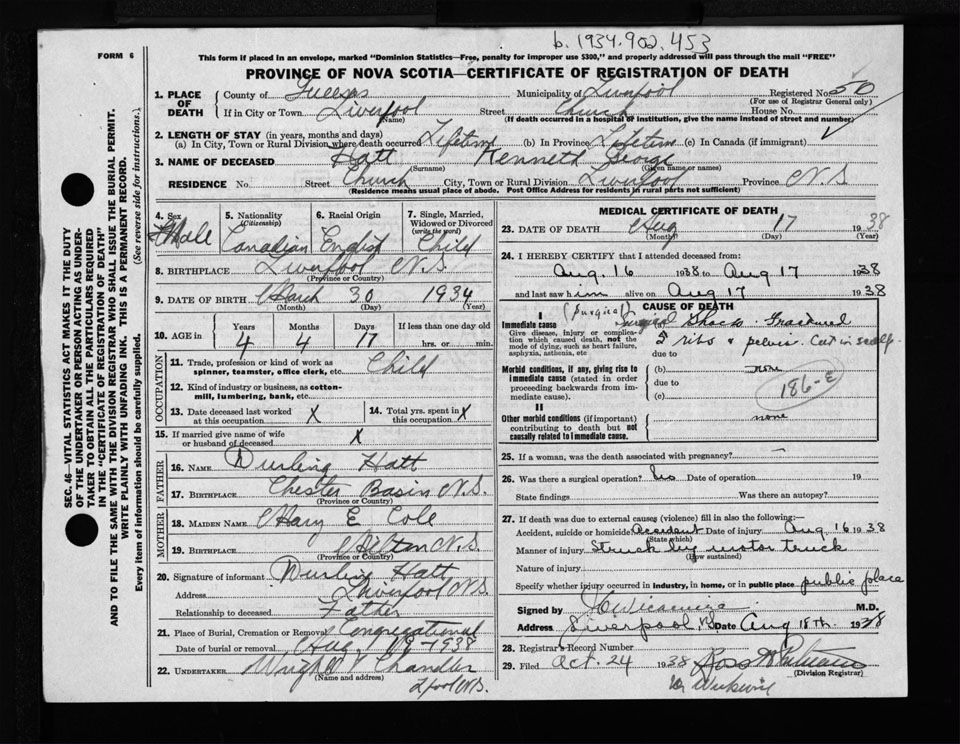 b. 1934.902.453
FORM 6
This form if placed in an envelope, marked "Dominion Statistics—Free, penalty for improper use $300," and properly addressed will pass through the mail "FREE"
PROVINCE OF NOVA SCOTIA—CERTIFICATE OF REGISTRATION OF DEATH
1. PLACE OF DEATH
County of Queens Municipality of Liverpool Registered No. 50
(For use of Registrar General only)
If in City or Town Liverpool Street Church House No.
(Name) (If death occurred in a hospital or institution, give the name instead of street and number)
2. LENGTH OF STAY (in years, months and days)
(a) In City, Town or Rural Division where death occurred Lifetime (b) In Province Lifetime (c) In Canada (if immigrant)
3. NAME OF DECEASED Hatt Kenneth George
(Surname) (Given name or names)
RESIDENCE No. Street Church City, Town or Rural Division Liverpool Province N.S
(Residence means usual place of abode. Post Office Address for residents in rural parts not sufficient)
SEC. 46—VITAL STATISTICS ACT MAKES IT THE DUTY
OF THE UNDERTAKER OR PERSON ACTING AS UNDER-
TAKER TO OBTAIN ALL THE PARTICULARS REQUIRED
IN THE "CERTIFICATE OF REGISTRATION OF DEATH"
AND TO FILE THE SAME WITH THE DIVISION REGISTRAR WHO SHALL ISSUE THE BURIAL PERMIT.
WRITE PLAINLY WITH UNFADING INK. THIS IS A PERMANENT RECORD.
Every item of information should be carefully supplied. (See reverse side for instructions.)
4. Sex Male
5. Nationality (Citizenship) Canadian
6. Racial Origin English
7. Single, Married, Widowed or Divorced (write the word) Child
8. BIRTHPLACE Liverpool N.S
(Province or Country)
9. DATE OF BIRTH March 30 1934
(Month) (Day) (Year)
10. AGE in Years 4 Months 4 Days 17 If less than one day old
hrs. or min.
OCCUPATION
11. Trade, profession or kind of work as
spinner, teamster, office clerk, etc. Child
12. Kind of industry or business, as cotton-
mill, lumbering, bank, etc.
13. Date deceased last worked at this occupation X
14. Total yrs. spent in this occupation X
15. If married give name of wife
or husband of deceased X
FATHER
16. NAME Durling Hatt
17. BIRTHPLACE Chester Basin N.S.
(Province or Country)
MOTHER
18. MAIDEN NAME Mary E Cole
19. BIRTHPLACE Milton N.S.
(Province or Country)
20. Signature of informant Durling Hatt
Address Liverpool N.S.
Relationship to deceased Father
21. Place of Burial, Cremation or Removal Congregational
Date of burial or removal Aug 1938
22. UNDERTAKER Wright V Chandler
(Name and address)
L'pool N.S.
MEDICAL CERTIFICATE OF DEATH
23. DATE OF DEATH Aug 17 1938
(Month) (Day) (Year)
24. I HEREBY CERTIFY that I attended deceased from:
Aug. 16 1938 to Aug 17 1938
and last saw him alive on Aug 17 1938
CAUSE OF DEATH
I
(Surgical)
Immediate cause Surgical Shock Fractured
Give disease, injury or complica-
tion which caused death, not the
mode of dying, such as heart failure,
asphyxia, asthenia, etc
ribs & pelvis. Cut in scalp.
due to
Morbid conditions, if any, giving rise to
immediate cause (stated in order
proceeding backwards from im-
mediate cause).
(b) none
due to
(c)
186-E
II
Other morbid conditions (if important)
contributing to death but not
causally related to immediate cause.
none
25. If a woman, was the death associated with pregnancy? —
26. Was there a surgical operation? No Date of operation 19
State findings Was there an autopsy?
27. If death was due to external causes (violence) fill in also the following:—
Accident, suicide or homicide Accident Date of injury Aug 16 1938
(State which)
Manner of injury Struck by motor truck
(How sustained)
Nature of injury
Specify whether injury occurred in industry, in home, or in public place public place
Signed by M.D.
Address Liverpool NS Date Aug 18th. 1938
28. Registrar's Record Number
29. Filed Oct. 24 1938
(Division Registrar)